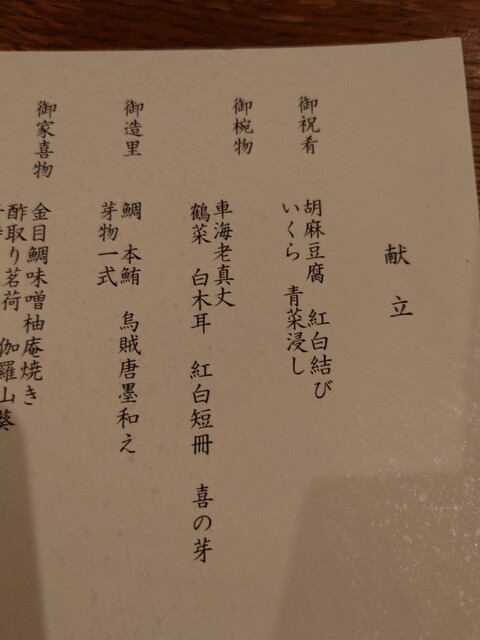 献立
御祝肴
胡麻豆腐 紅白結び
いくら 青菜浸し
御椀物
車海老真丈
鶴菜 白木耳 紅白短冊 喜の芽
御造里
鯛 本鮪 烏賊唐墨和え
芽物一式
御家喜物
金目鯛味噌柚庵焼き
酢取り茗荷 伽羅山葵